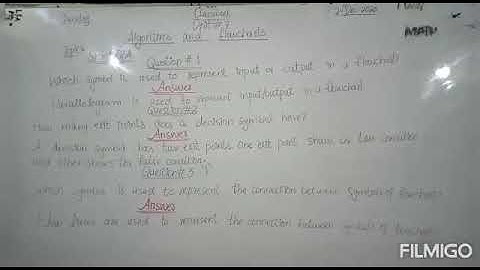 Algorithms and Flowcharts
Question # 1
Which symbol is used to represent input or output in a flowchart
Answer
Parallelogram is used to represent input/output in a flowchart
Question # 2
How many exit points does a decision symbol have?
Answer
A decision symbol has two exit points one exit point shows
and other shows the false condition
Question # 3
which symbol is used to represent the connection between symbols of flowchart
Answer
Flow lines are used to represent the connection between symbols of flowchart
MATH
FILMIGO